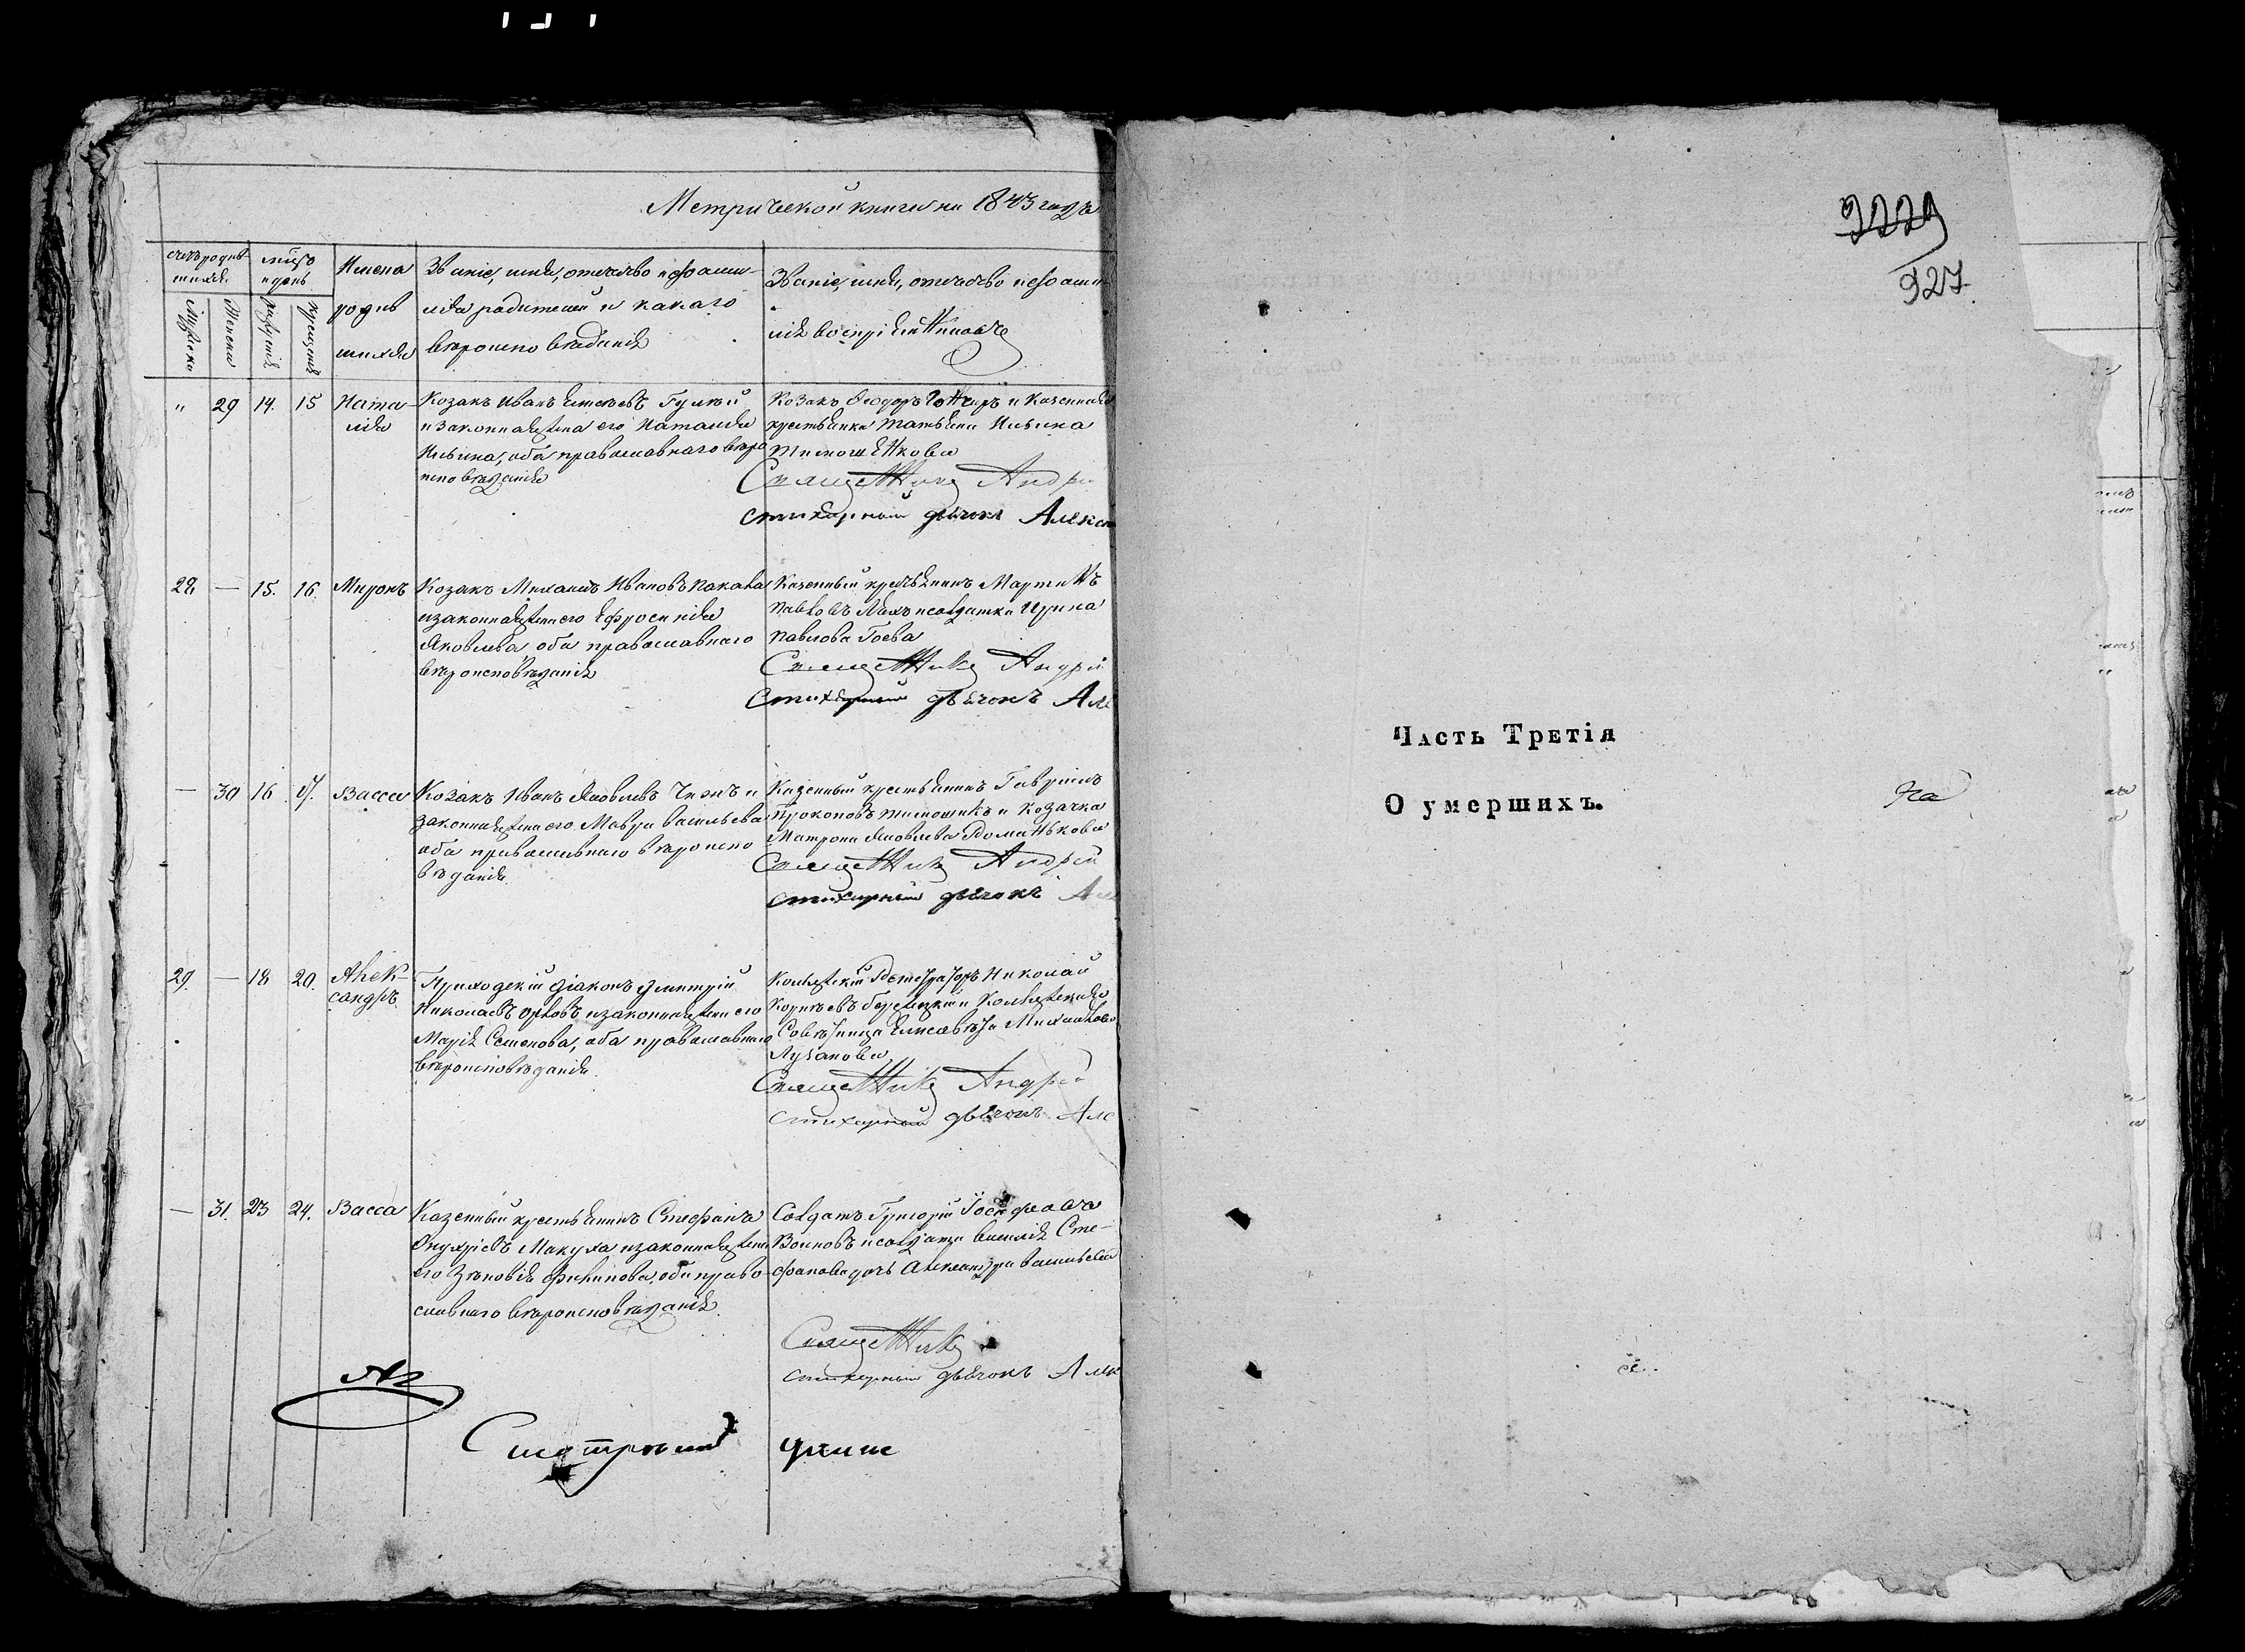 Метрической книги на 1843 годъ
счетъ родив
шихся
мѣсяцъ
и день
Имена
родив
шихся
Званіе, имя, отечество и фами-
лія родителей и какаго
вѣроисповѣданія
Званіе, имя, отечество и фами
лія воспріемниковъ
Мужска
Женска
рожденія
крещенія
" 29 14. 15 Ната-
лія
Козакъ Иванъ
и законная жена его Наталія
Ильина, оба православнаго вѣро
исповѣданія
Козакъ Феодоръ и казенная
крестьянка Татьяна Ильина
Тимошенкова
Священникъ Андре
стихарный дьячокъ Алекса
28 — 15. 16. Миронъ
Козакъ Михаилъ Ивановъ
и законная жена его Ефросинія
Яковлева оба православнаго
вѣроисповѣданія
Казенный крестьянинъ Мартинъ
Павловъ Ляхъ и солдатка Ирина
Павлова Гоева
Священникъ Андрей
стихарный дьячокъ Але
— 30 16. 17. Васса
Козакъ Иванъ Яковлевъ и
законная жена его Мавра Васильева
оба православнаго вѣроиспо
вѣданія.
Казенный крестьянинъ Гавріилъ
Прокоповъ и козачка
Матрона Яковлева
Священникъ Андрей
стихарный дьячокъ Але
29. — 18 20. Алек-
сандръ
Приходскій діаконъ Димитрій
Николаевъ Орловъ и законная жена его
Марія Семенова, оба православнаго
вѣроисповѣданія.
Колежскій Регистраторъ Николай
Корнѣевъ и Колежская
Совѣтница Елисавѣта Михайлова
Лузанова
Священникъ Андрей
стихарный дьячокъ Але
— 31. 23 24. Васса
Казенный крестьянинъ Стефанъ
Онуфріевъ Макуха и законная жена
его Зѣновія Филипова, оба право-
славнаго вѣроисповѣданія.
Солдатъ Григорій Іосифовъ
Воиновъ и солдата Василія Сте-
фанова дочь Александра Васильева
Священникъ
стихарный дьячокъ Алек
Смотрѣлъ
9229
927.
Часть Третія
О умершихъ.